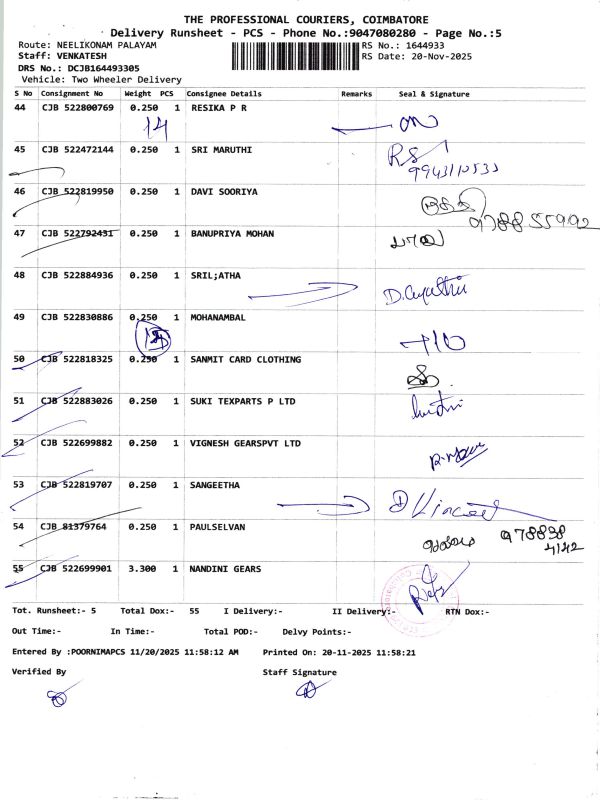 THE PROFESSIONAL COURIERS, COIMBATORE
Delivery Runsheet - PCS - Phone No.:9047080280 - Page No.:5
Route: NEELIKONAM PALAYAM RS No.: 1644933
Staff: VENKATESH RS Date: 20-Nov-2025
DRS No.: DCJB164493305
Vehicle: Two Wheeler Delivery
S No Consignment No Weight PCS Consignee Details Remarks Seal & Signature
44 CJB 522800769 0.250 1 RESIKA P R
14
45 CJB 522472144 0.250 1 SRI MARUTHI
9943110533
46 CJB 522819950 0.250 1 DAVI SOORIYA
47 CJB 522792431 0.250 1 BANUPRIYA MOHAN
48 CJB 522884936 0.250 1 SRIL;ATHA
49 CJB 522830886 0.250 1 MOHANAMBAL
50 CJB 522818325 0.250 1 SANMIT CARD CLOTHING
51 CJB 522883026 0.250 1 SUKI TEXPARTS P LTD
52 CJB 522699882 0.250 1 VIGNESH GEARSPVT LTD
53 CJB 522819707 0.250 1 SANGEETHA
54 CJB 81379764 0.250 1 PAULSELVAN
55 CJB 522699901 3.300 1 NANDINI GEARS
Tot. Runsheet:- 5 Total Dox:- 55 I Delivery:- II Delivery:- RTN Dox:-
Out Time:- In Time:- Total POD:- Delvy Points:-
Entered By :POORNIMAPCS 11/20/2025 11:58:12 AM Printed On: 20-11-2025 11:58:21
Verified By Staff Signature